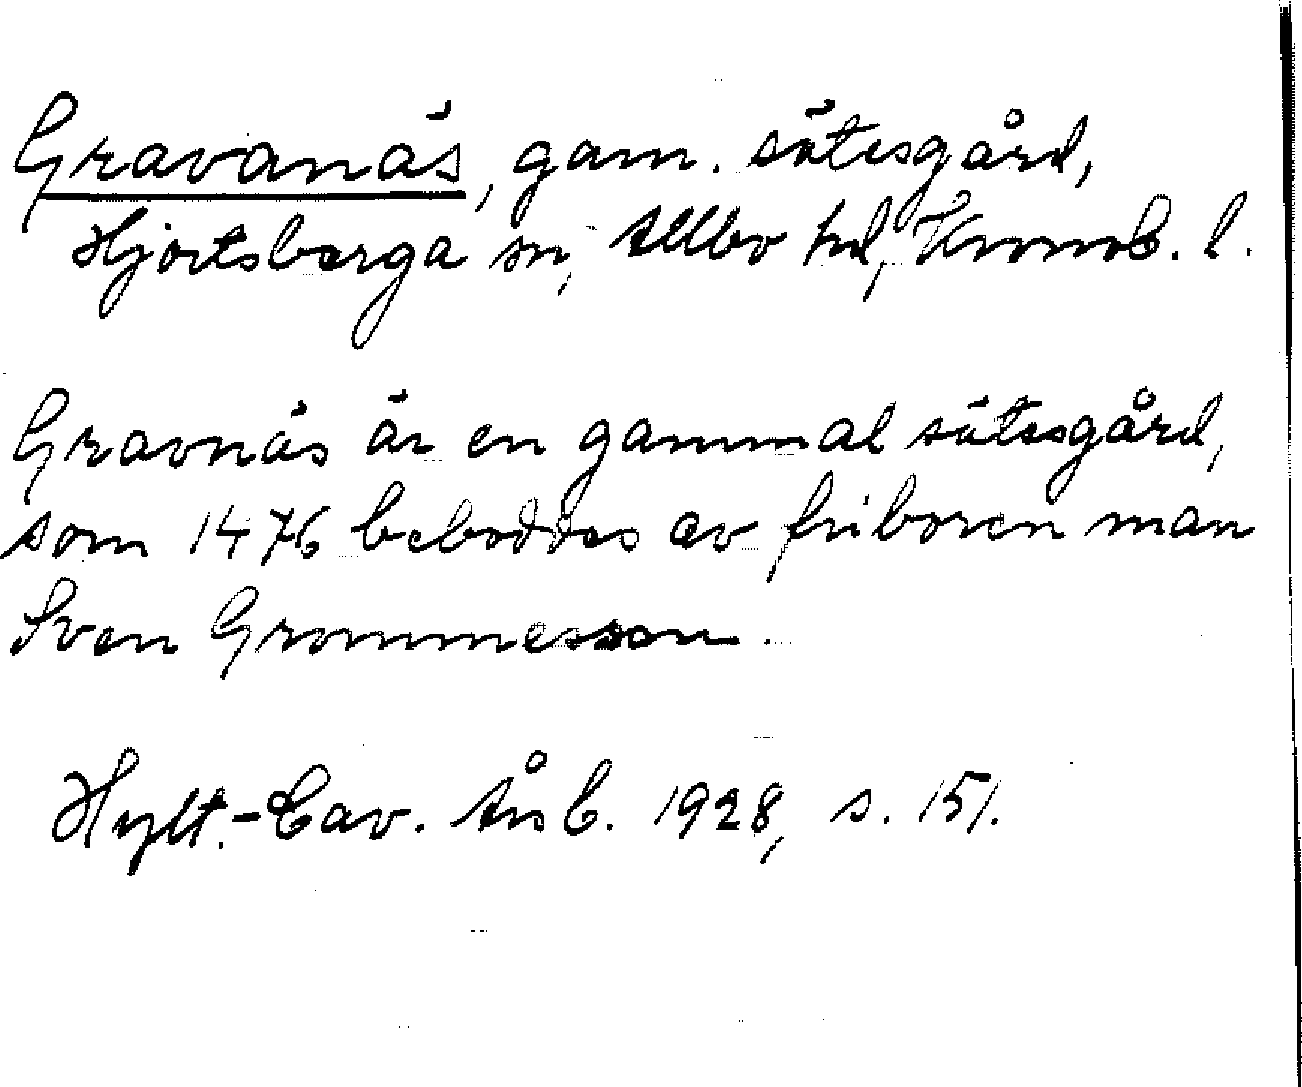 Gravanäs, gam. sätesgård,
Hjortsberga sn, Allbo hd, Kronob. l.
Gravnäs är en gammal sätesgård,
som 1476 beboddes av friboren man
Sven Grommesson.
Hylt.-Cav. Årsb. 1928, s. 151.